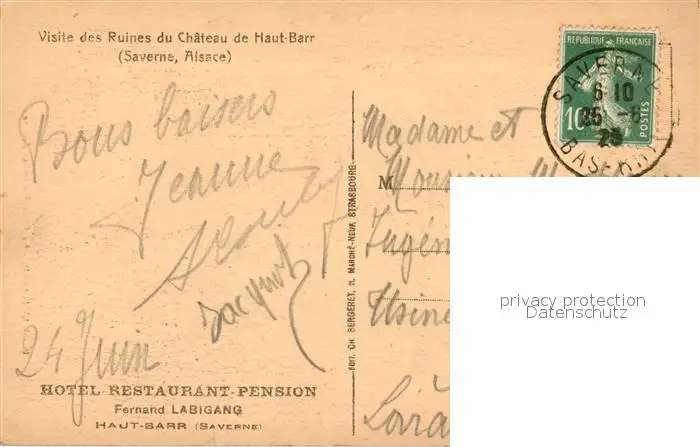 Visite des Ruines du Château de Haut-Barr
(Saverne, Alsace)
Bons baisers
Jeanne
Jacquot
24 Juin
HOTEL RESTAURANT-PENSION
Fernand LABIGANG
HAUT-BARR (SAVERNE)
EDIT. CH. BERGERET, 11, MARCHÉ-NEUF, STRASBOURG
REPUBLIQUE FRANÇAISE
10
POSTES
SAVERNE
6 10
25
25
BAS-RHIN
Madame et
M Monsieur
Usine
privacy protection
Datenschutz